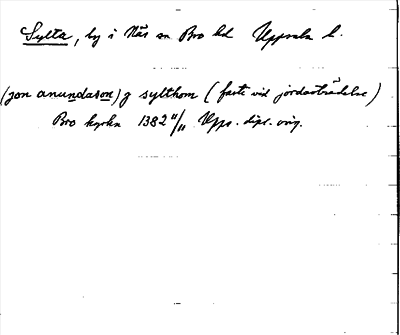 Sylta, by i Näs sn Bro hd Uppsala l.
(jon anundason) j sylthom (faste vid jordaöverlåtelse)
Bro kyrka 1382 11/11 Upps. dipl. orig.